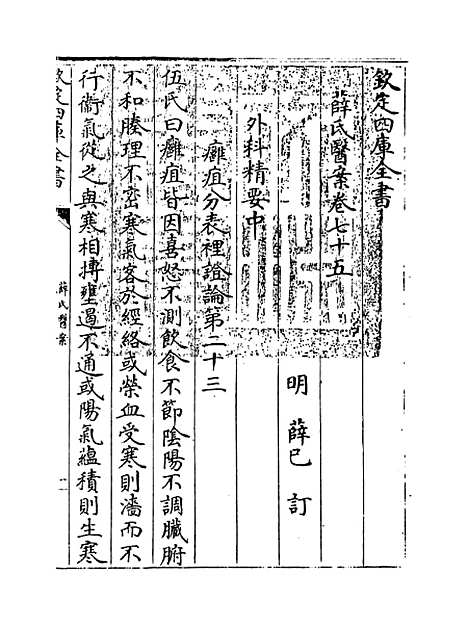 欽定四庫全書
薛氏醫案卷七十五
明 薛己 訂
外科精要中
癰疽分表裡證論第二十三
伍氏曰癰疽皆因喜怒不測飲食不節陰陽不調臟腑
不和腠理不密寒氣客於經絡或榮血受寒則濇而不
行衞氣從之與寒相搏壅遏不通或陽氣蘊積則生寒
欽定四庫全書
薛氏醫案